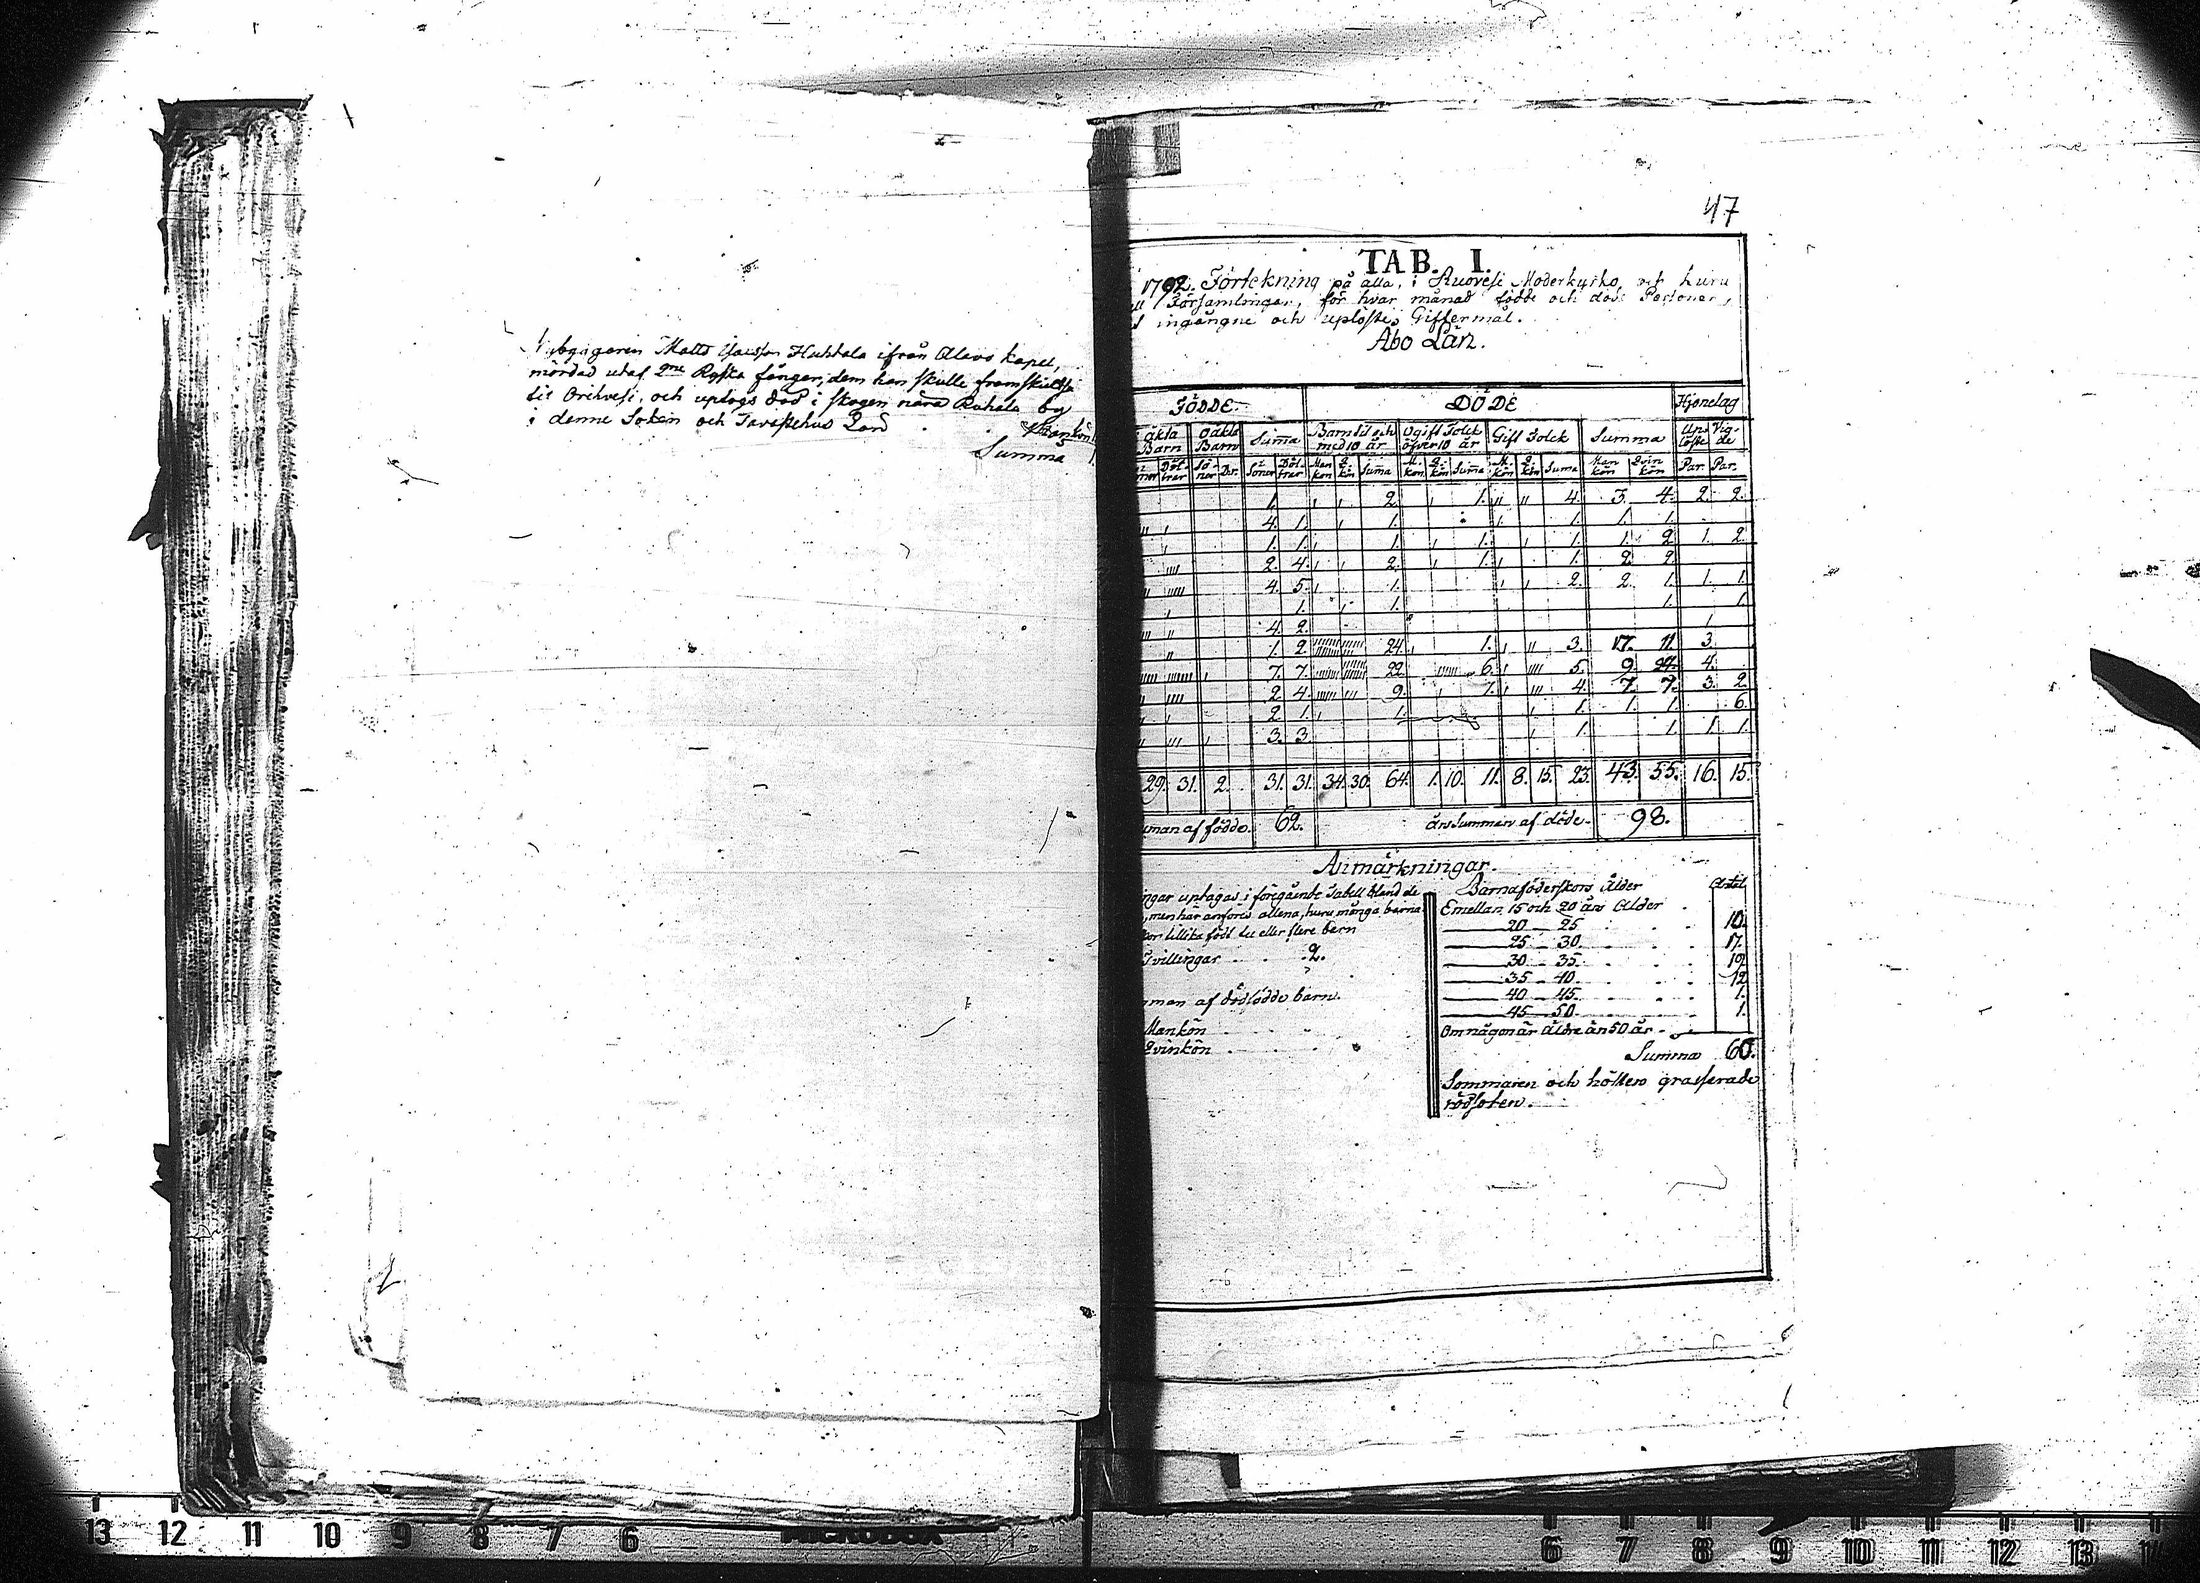 Nybyggaren Matts Huhtala ifrån Alavo kapel,
mördad utaf 2ne Ryska fångar, dem han skulle
til Orihvesi, och uptogs död i skogen nära Ruhala by
i denne Sokn och Tavastehus Län
Mankön 1.
Summa 1.
47
TAB. I.
1792. Förtekning på alla, i Ruovesi Moderkyrko, och huru
Församlingar, för hvar månad födde och döde Personer,
ingångne och uplöste Giftermål.
Åbo Län.
FÖDDE. DÖDE Hjonelag
äkta Barn Oäkta Barn Summa Barn til och med 10 år Ogift Folck öfver 10 år Gift Folck Summa Uplöste Vigde
Döttrar Söner Dr. Söner Döttrar Man kön Q. kön Suma M. kön Q. kön Suma M. kön Q. kön Suma Man kön Qvin kön Par. Par.
1. 2. 1. 4. 3. 4. 2. 2.
4. 1. 1. 1. 1. 1.
1. 1. 1. 1. 1. 1. 2. 1. 2.
2. 4. 2. 1. 1. 2. 2.
4. 5. 1. 2. 2. 1. 1. 1.
1. 1. 1. 1.
4. 2. 1.
1. 2. 24. 1. 3. 17. 11. 3.
7. 7. 22. 6. 5. 9. 24. 4.
2. 4. 9. 1. 4. 7. 7. 3. 2.
2. 1. 1. 1. 1. 1. 6.
3. 3. 1. 1. 1. 1.
29. 31. 2. 31. 31. 34. 30. 64. 1. 10. 11. 8. 15. 23. 43. 55. 16. 15.
uman af födde. 62. års Summan af döde. 98.
Anmärkningar.
ngar uptagas i föregående Tabell bland de
, men här anföres allena, huru många barna
kor tillika födt tu eller flere barn
Tvillingar 2.
man af dödfödde barn.
Mankön
Qvinkön
Barnaföderskors Ålder Antal
Emellan 15 och 20 års Ålder
20 – 25 10.
25 – 30 17.
30 – 35 19
35 – 40 12
40 – 45 1.
45 – 50 1.
Om någon är äldre än 50 år
Summa 60.
Sommaren och hösten grasserade
rödsoten.
13 12 11 10 9 8 7 6
MICRODOX
6 7 8 9 10 11 12 13 14